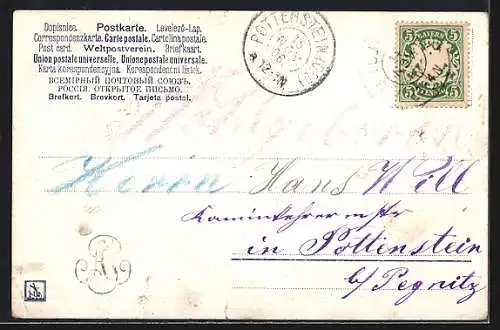 Dopisnice. Postkarte. Levelező-Lap.
Correspondenzkarte. Carte postale. Cartolina postale.
Post card. Weltpostverein. Briefkaart.
Union postale universelle. Unione postale universale.
Karta korespondencyjna. Korespondenční lístek.
ВСЕМІРНЫЙ ПОЧТОВЫЙ СОЮЗЪ.
РОССІЯ. ОТКРЫТОЕ ПИСЬМО.
Brefkort. Brevkort. Tarjeta postal.
POTTENSTEIN
15
NOV
BAYERN
5 5
5 5
Herrn Hans Will
Kaminkehrermstr
in Pottenstein
b/ Pegnitz